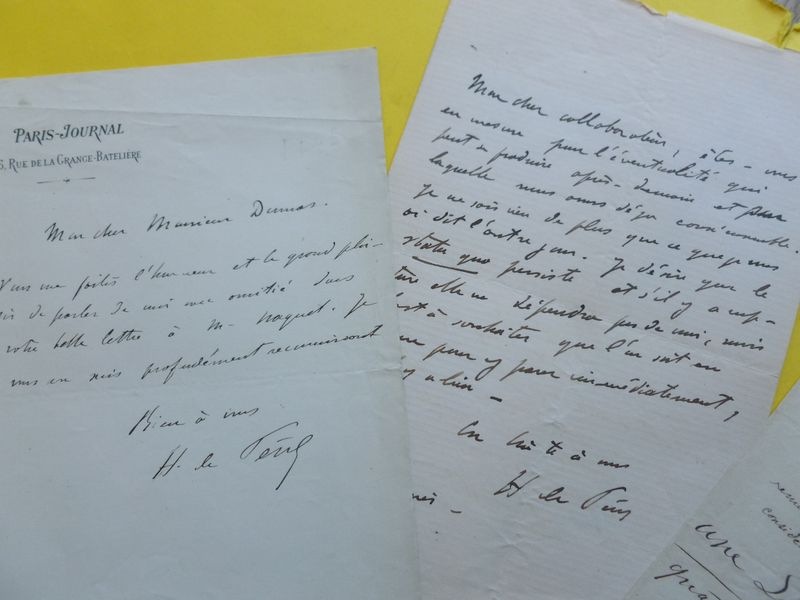 PARIS-JOURNAL
6, RUE DE LA GRANGE-BATELIÈRE
Mon cher Monsieur Dumas.
Vous me faites l'honneur et le grand plai-
sir de parler de moi avec amitié dans
votre belle lettre à M. Naquet. Je
vous en suis profondément reconnaissant
Bien à vous
H. de Pène
Mon cher collaborateur, êtes-vous
en mesure pour l'éventualité qui
peut se produire après-demain et pour
laquelle nous avons déjà causé ensemble.
Je ne sais rien de plus que ce que je vous
ai dit l'autre jour. Je désire que le
statu quo persiste et s'il y a rup-
ture elle ne dépendra pas de moi, mais
est à souhaiter que l'on soit en
pour y parer immédiatement,
y a lieu -
En hâte à vous
H. de Pène
rem
conside
une